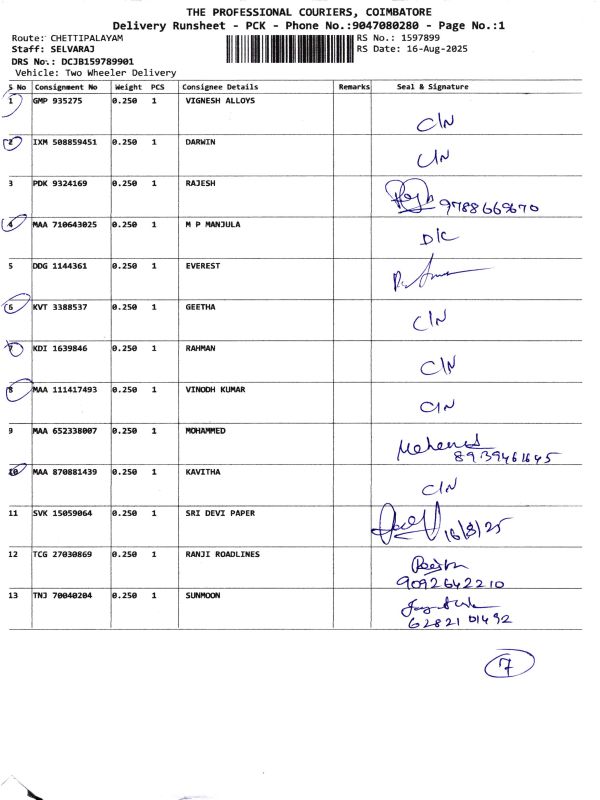 THE PROFESSIONAL COURIERS, COIMBATORE
Delivery Runsheet - PCK - Phone No.:9047080280 - Page No.:1
Route: CHETTIPALAYAM RS No.: 1597899
Staff: SELVARAJ RS Date: 16-Aug-2025
DRS No.: DCJB159789901
Vehicle: Two Wheeler Delivery
S No Consignment No Weight PCS Consignee Details Remarks Seal & Signature
1 GMP 935275 0.250 1 VIGNESH ALLOYS
C/N
2 IXM 508859451 0.250 1 DARWIN
C/N
3 PDK 9324169 0.250 1 RAJESH
9788669670
4 MAA 710643025 0.250 1 M P MANJULA
D/C
5 DDG 1144361 0.250 1 EVEREST
6 KVT 3388537 0.250 1 GEETHA
C/N
7 KDI 1639846 0.250 1 RAHMAN
C/N
8 MAA 111417493 0.250 1 VINODH KUMAR
C/N
9 MAA 652338007 0.250 1 MOHAMMED
8939461645
10 MAA 870881439 0.250 1 KAVITHA
C/N
11 SVK 15059064 0.250 1 SRI DEVI PAPER
16/8/25
12 TCG 27030869 0.250 1 RANJI ROADLINES
9092642210
13 TNJ 70040204 0.250 1 SUNMOON
62821 01492
7